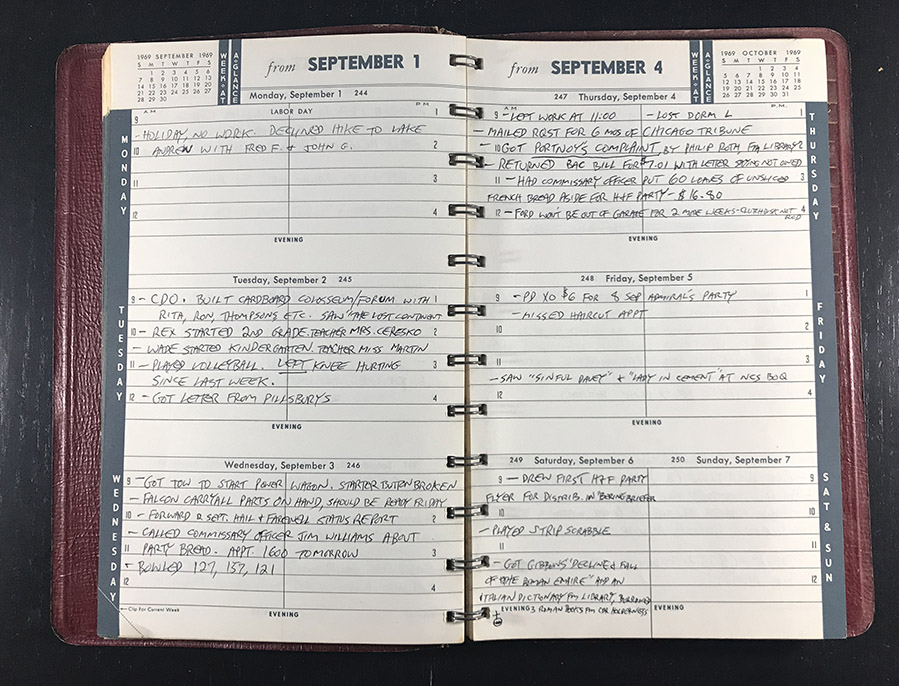 1969 SEPTEMBER 1969
S M T W T F S
1 2 3 4 5 6
7 8 9 10 11 12 13
14 15 16 17 18 19 20
21 22 23 24 25 26 27
28 29 30
WEEK•AT
A•GLANCE
from SEPTEMBER 1
Monday, September 1 244
MONDAY
A M
LABOR DAY
P M
9 - HOLIDAY, NO WORK. DECLINED HIKE TO LAKE 1
10 ANDREW WITH FRED F. & JOHN G. 2
11 3
12 4
EVENING
Tuesday, September 2 245
TUESDAY
9 - CDO. BUILT CARDBOARD COLOSSEUM/FORUM WITH 1
RITA, RON, THOMPSONS ETC. SAW "THE LOST CONTINENT
10 - REX STARTED 2ND GRADE. TEACHER MRS. CERESKO 2
- WADE STARTED KINDERGARTEN. TEACHER MISS MARTIN
11 - PLAYED VOLLEYBALL. LEFT KNEE HURTING 3
SINCE LAST WEEK.
12 - GOT LETTER FROM PILLSBURY'S 4
EVENING
Wednesday, September 3 246
WEDNESDAY
9 - GOT TOW TO START POWER WAGON. STARTER BUTTON BROKEN
- FALCON CARRYALL PARTS ON HAND, SHOULD BE READY FRIDAY
10 - FORWARD SEPT. HAIL & FAREWELL STATUS REPORT 2
- CALLED COMMISSARY OFFICER JIM WILLIAMS ABOUT
11 PARTY BREAD. APPT. 1600 TOMORROW 3
- BOWLED 127, 137, 121
12 4
←Clip For Current Week
EVENING
from SEPTEMBER 4
WEEK•AT
A•GLANCE
1969 OCTOBER 1969
S M T W T F S
1 2 3 4
5 6 7 8 9 10 11
12 13 14 15 16 17 18
19 20 21 22 23 24 25
26 27 28 29 30 31
247 Thursday, September 4
THURSDAY
AM
P.M.
9 - LEFT WORK AT 11:00 - LOST DORM L 1
- MAILED RQST FOR 6 MOS OF CHICAGO TRIBUNE
- 10 GOT PORTNOY'S COMPLAINT BY PHILIP ROTH FM LIBRARY 2
- RETURNED BAC BILL FOR $7.01 WITH LETTER SAYING NOT OWED
11 - HAD COMMISSARY OFFICER PUT 60 LOAVES OF UNSLICED 3
FRENCH BREAD ASIDE FOR H&F PARTY - $16.80
12 - FORD WON'T BE OUT OF GARAGE FOR 2 MORE WEEKS - CLUTCH DISK NOT 4
EVENING
248 Friday, September 5
FRIDAY
9 - PD XO $6 FOR 8 SEP ADMIRAL'S PARTY 1
- MISSED HAIRCUT APPT
10 2
11 3
- SAW "SINFUL DAVEY" & "LADY IN CEMENT" AT NCS BOQ
12 4
EVENING
249 Saturday, September 6
250 Sunday, September 7
SAT & SUN
9 - DREW FIRST H&F PARTY 9
FLYER FOR DISTRIB. IN
10 10
- PLAYED STRIP SCRABBLE
11 11
- GOT GIBBONS' "DECLINE & FALL
12 OF THE ROMAN EMPIRE" AND AN 12
ITALIAN DICTIONARY FM LIBRARY, BORROWED
EVENING 3 ROMAN BOOKS FM
EVENING